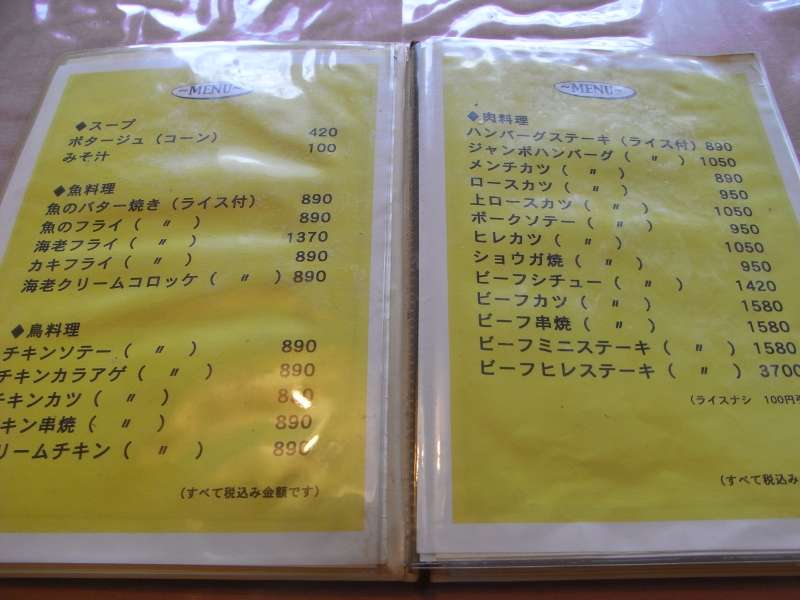 ~MENU~
◆スープ
ポタージュ（コーン） 420
みそ汁 100
◆魚料理
魚のバター焼き（ライス付） 890
魚のフライ（ 〃 ） 890
海老フライ（ 〃 ） 1370
カキフライ（ 〃 ） 890
海老クリームコロッケ（ 〃 ） 890
◆鳥料理
チキンソテー（ 〃 ） 890
チキンカラアゲ（ 〃 ） 890
チキンカツ（ 〃 ） 890
キン串焼（ 〃 ） 890
リームチキン（ 〃 ） 890
（すべて税込み金額です）
~MENU~
◆肉料理
ハンバーグステーキ（ライス付） 890
ジャンボハンバーグ（ 〃 ） 1050
メンチカツ（ 〃 ） 890
ロースカツ（ 〃 ） 950
上ロースカツ（ 〃 ） 1050
ポークソテー（ 〃 ） 950
ヒレカツ（ 〃 ） 1050
ショウガ焼（ 〃 ） 950
ビーフシチュー（ 〃 ） 1420
ビーフカツ（ 〃 ） 1580
ビーフ串焼（ 〃 ） 1580
ビーフミニステーキ（ 〃 ） 1580
ビーフヒレステーキ（ 〃 ） 3700
（ライスナシ 100円引
（すべて税込み